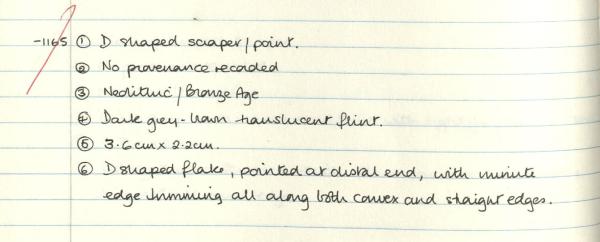 -1165 ① D shaped scraper/point.
② No provenance recorded
③ Neolithic/Bronze Age
④ Dark grey-brown translucent flint.
⑤ 3.6cm x 2.2cm.
⑥ D shaped flake, pointed at distal end, with minute
edge trimming all along both convex and straight edges.